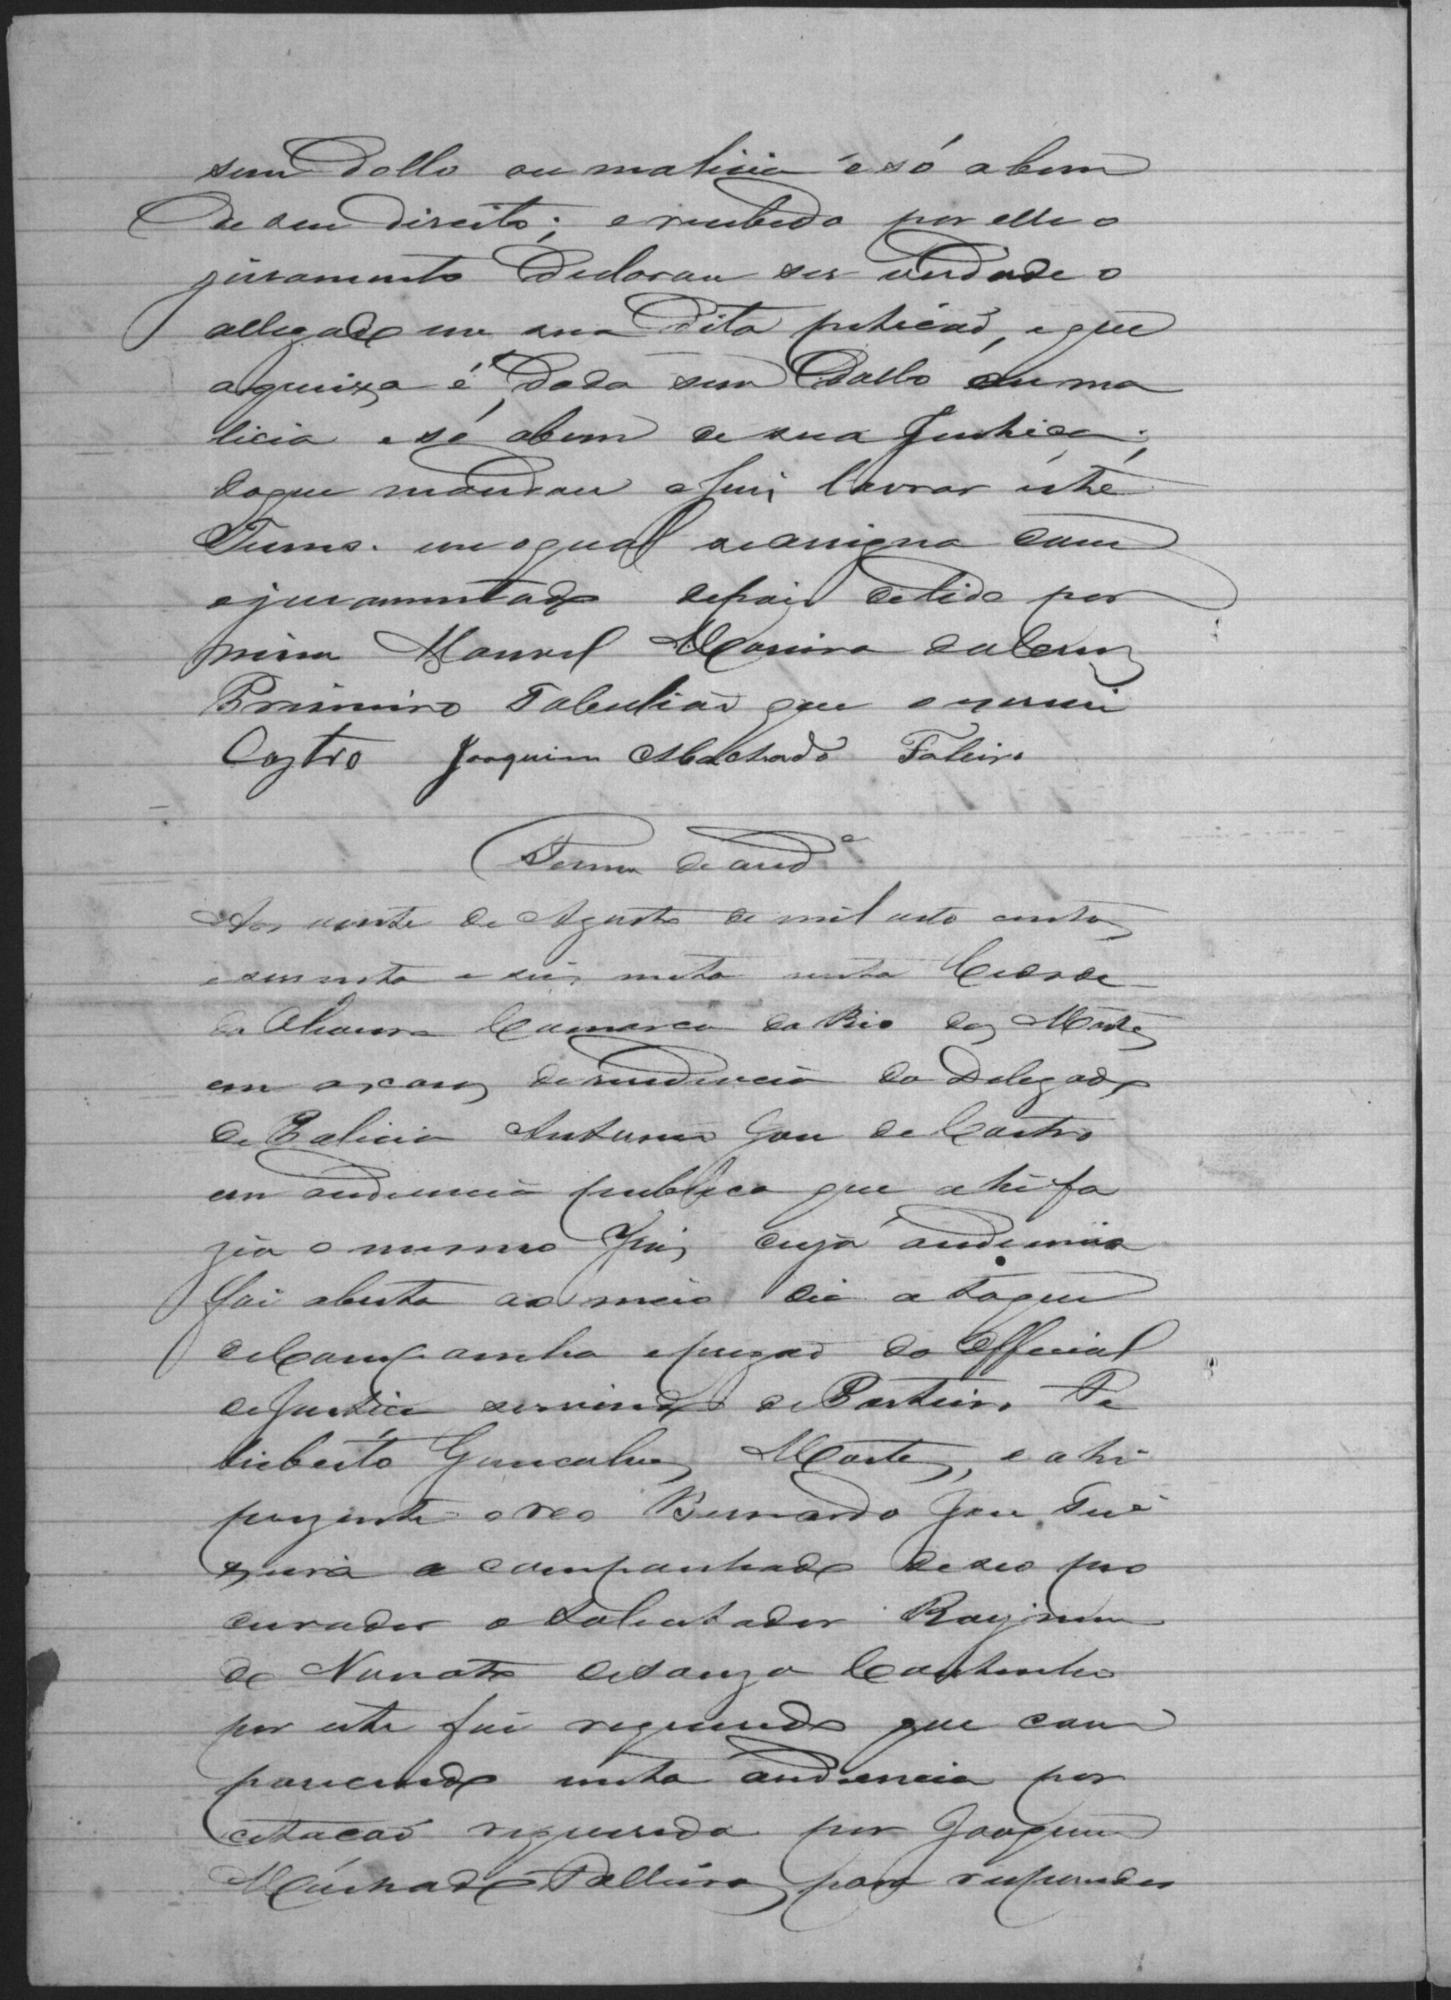 sem Dollo ou malicia e só abem
de seu direito; e recebido por elle o
juramento Declarou ser verdade o
allegado em sua dita petiçaõ, e que
aqueixa é Dada sem Dollo ou ma
licia e só abem de sua Justiça;
doque mandou o Juiz lavrar este
Termo. em oqual se assigna com
ojuramentado depois delido por
mim Manoel Moreira da Cruz
Primeiro Tabeliaõ que o escrevi
Castro Joaquim Machado Faleiro
Termo de aud.ª
Aos vinte de Agosto de mil oito centos
e secenta e seis nesta Cidade
da Comarca do Rio das Mortes
em as casas de residencia do Delegado
de Policia Antonio José de Castro
em audiencia publica que ahi fa
zia o mesmo Juiz, cuja audiencia
foi aberta ao meio dia a toque
de Campainha e pregaõ do Official
de Justiça servindo de Porteiro Fe
lisberto Gonçalves Martes, e ahi
prezente o reo Bernardo José Tei
xeira a companhado de seo pro
curador o Solicitador Raymun
do Nonato de Souza Coutinho
por este foi requerido que com
parecendo nesta audiencia por
citacaõ requerida por Joaquim
Machado Falleiros para responder